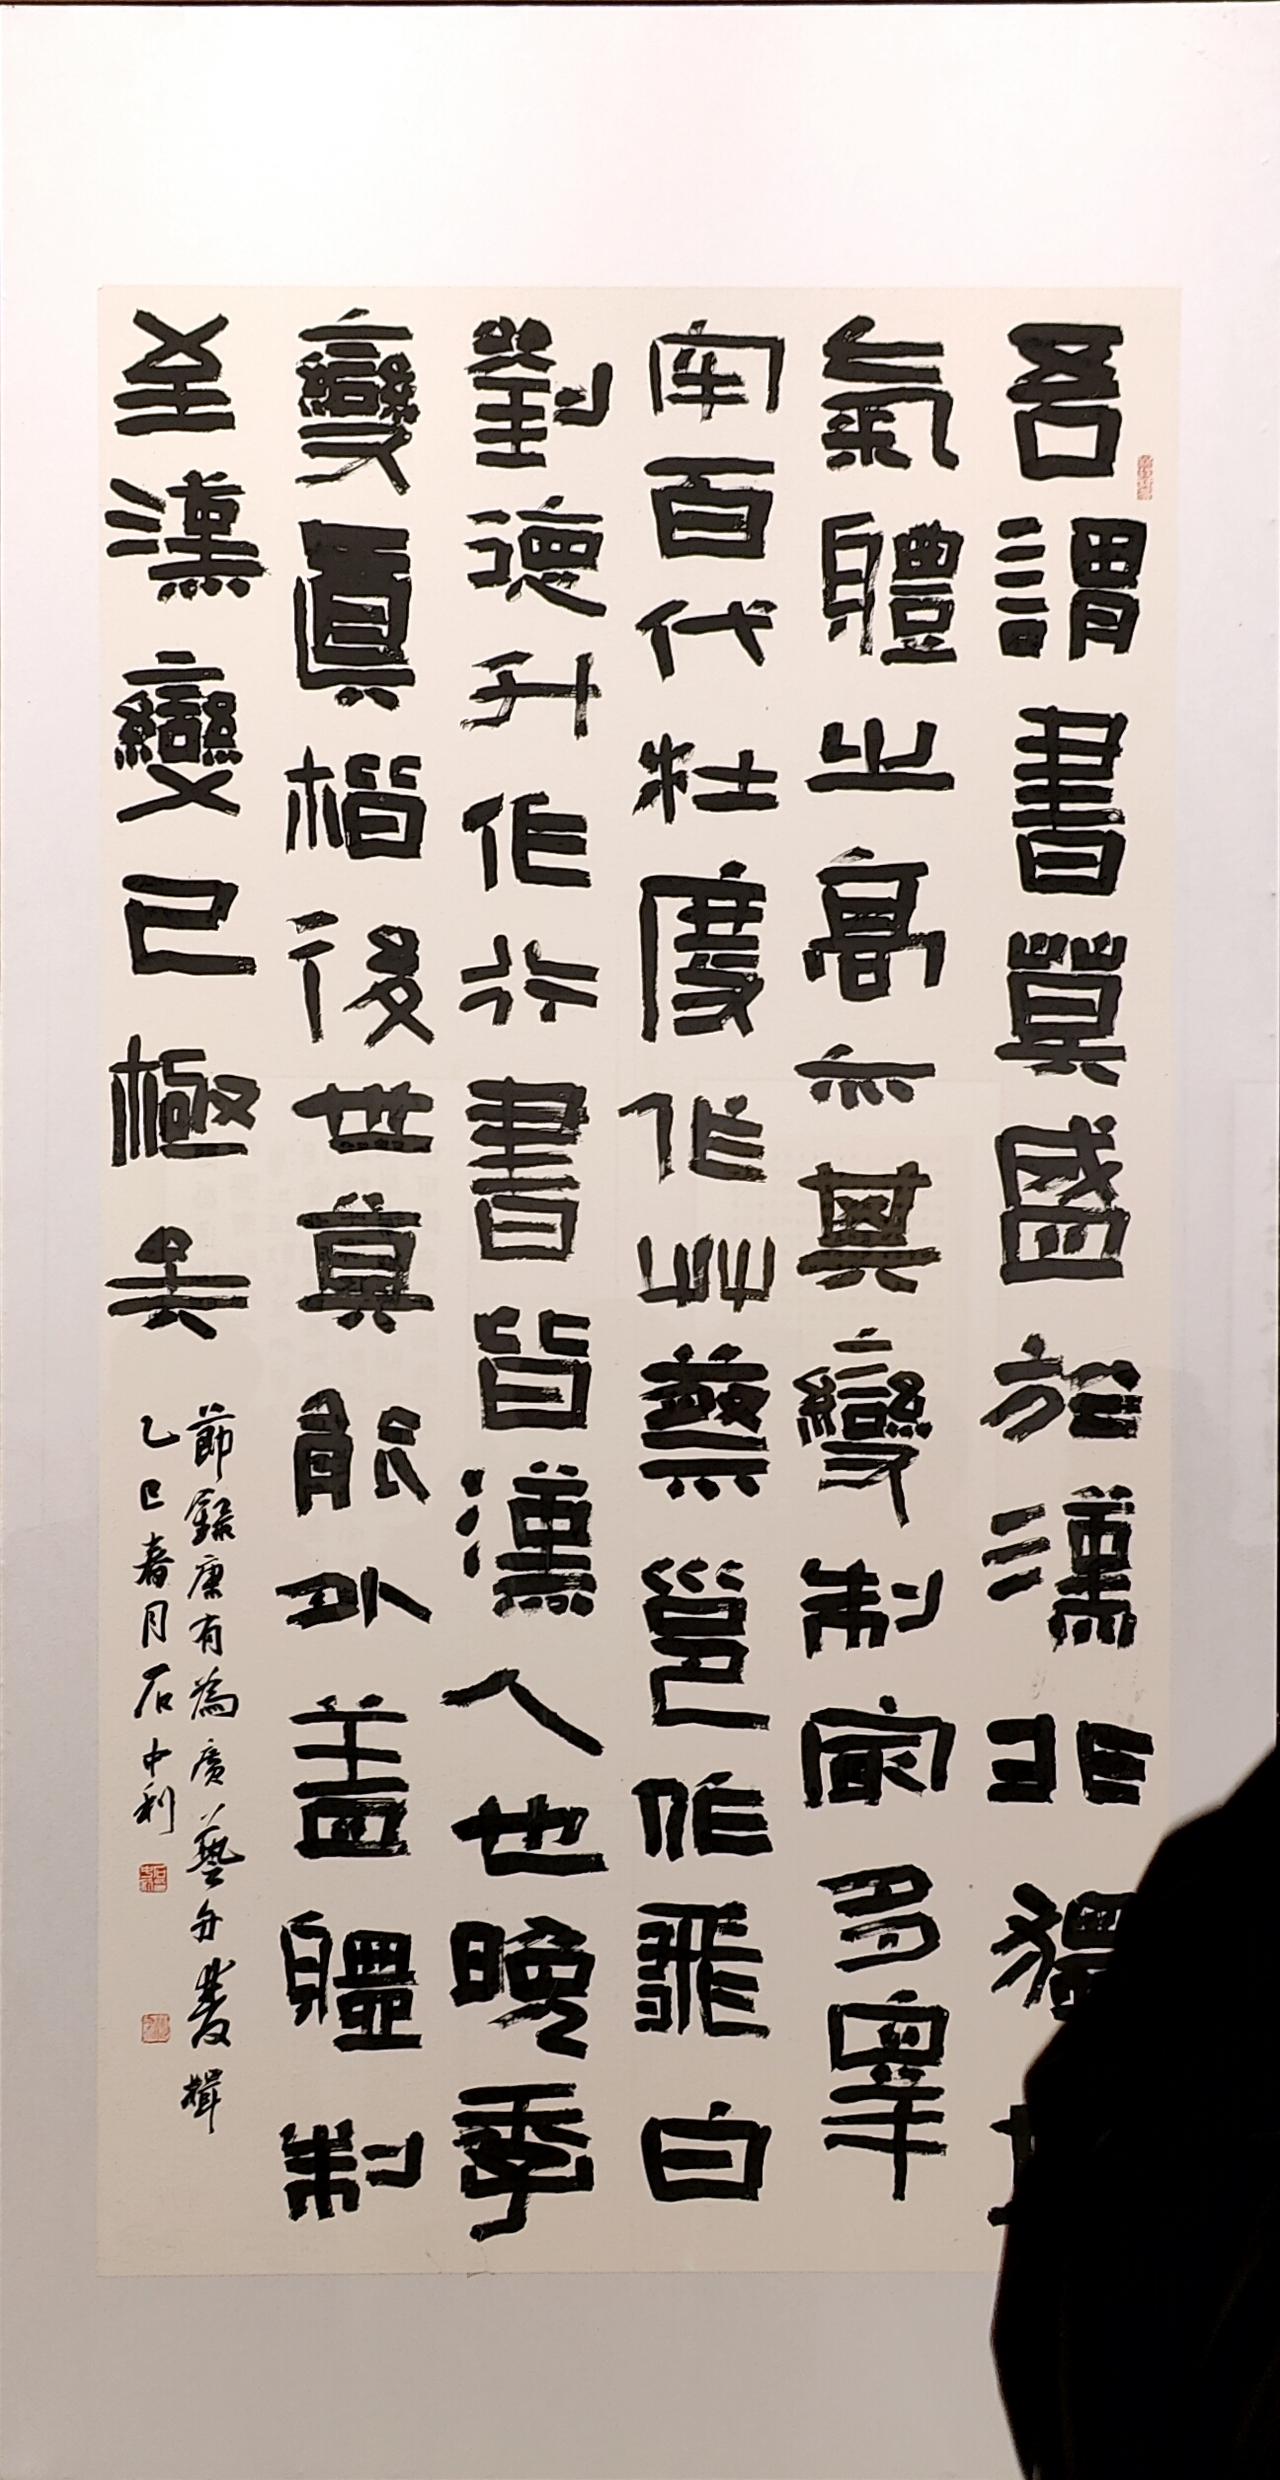 吾謂書莫盛於漢非獨
氣體之高亦其變制最多皋
牢百代杜度作艸蔡邕作飛白
劉德升作行書皆漢人也晚季
變真楷後世莫能外蓋體制
至漢變已極矣
節錄康有為廣藝舟雙楫
乙巳春月石中利